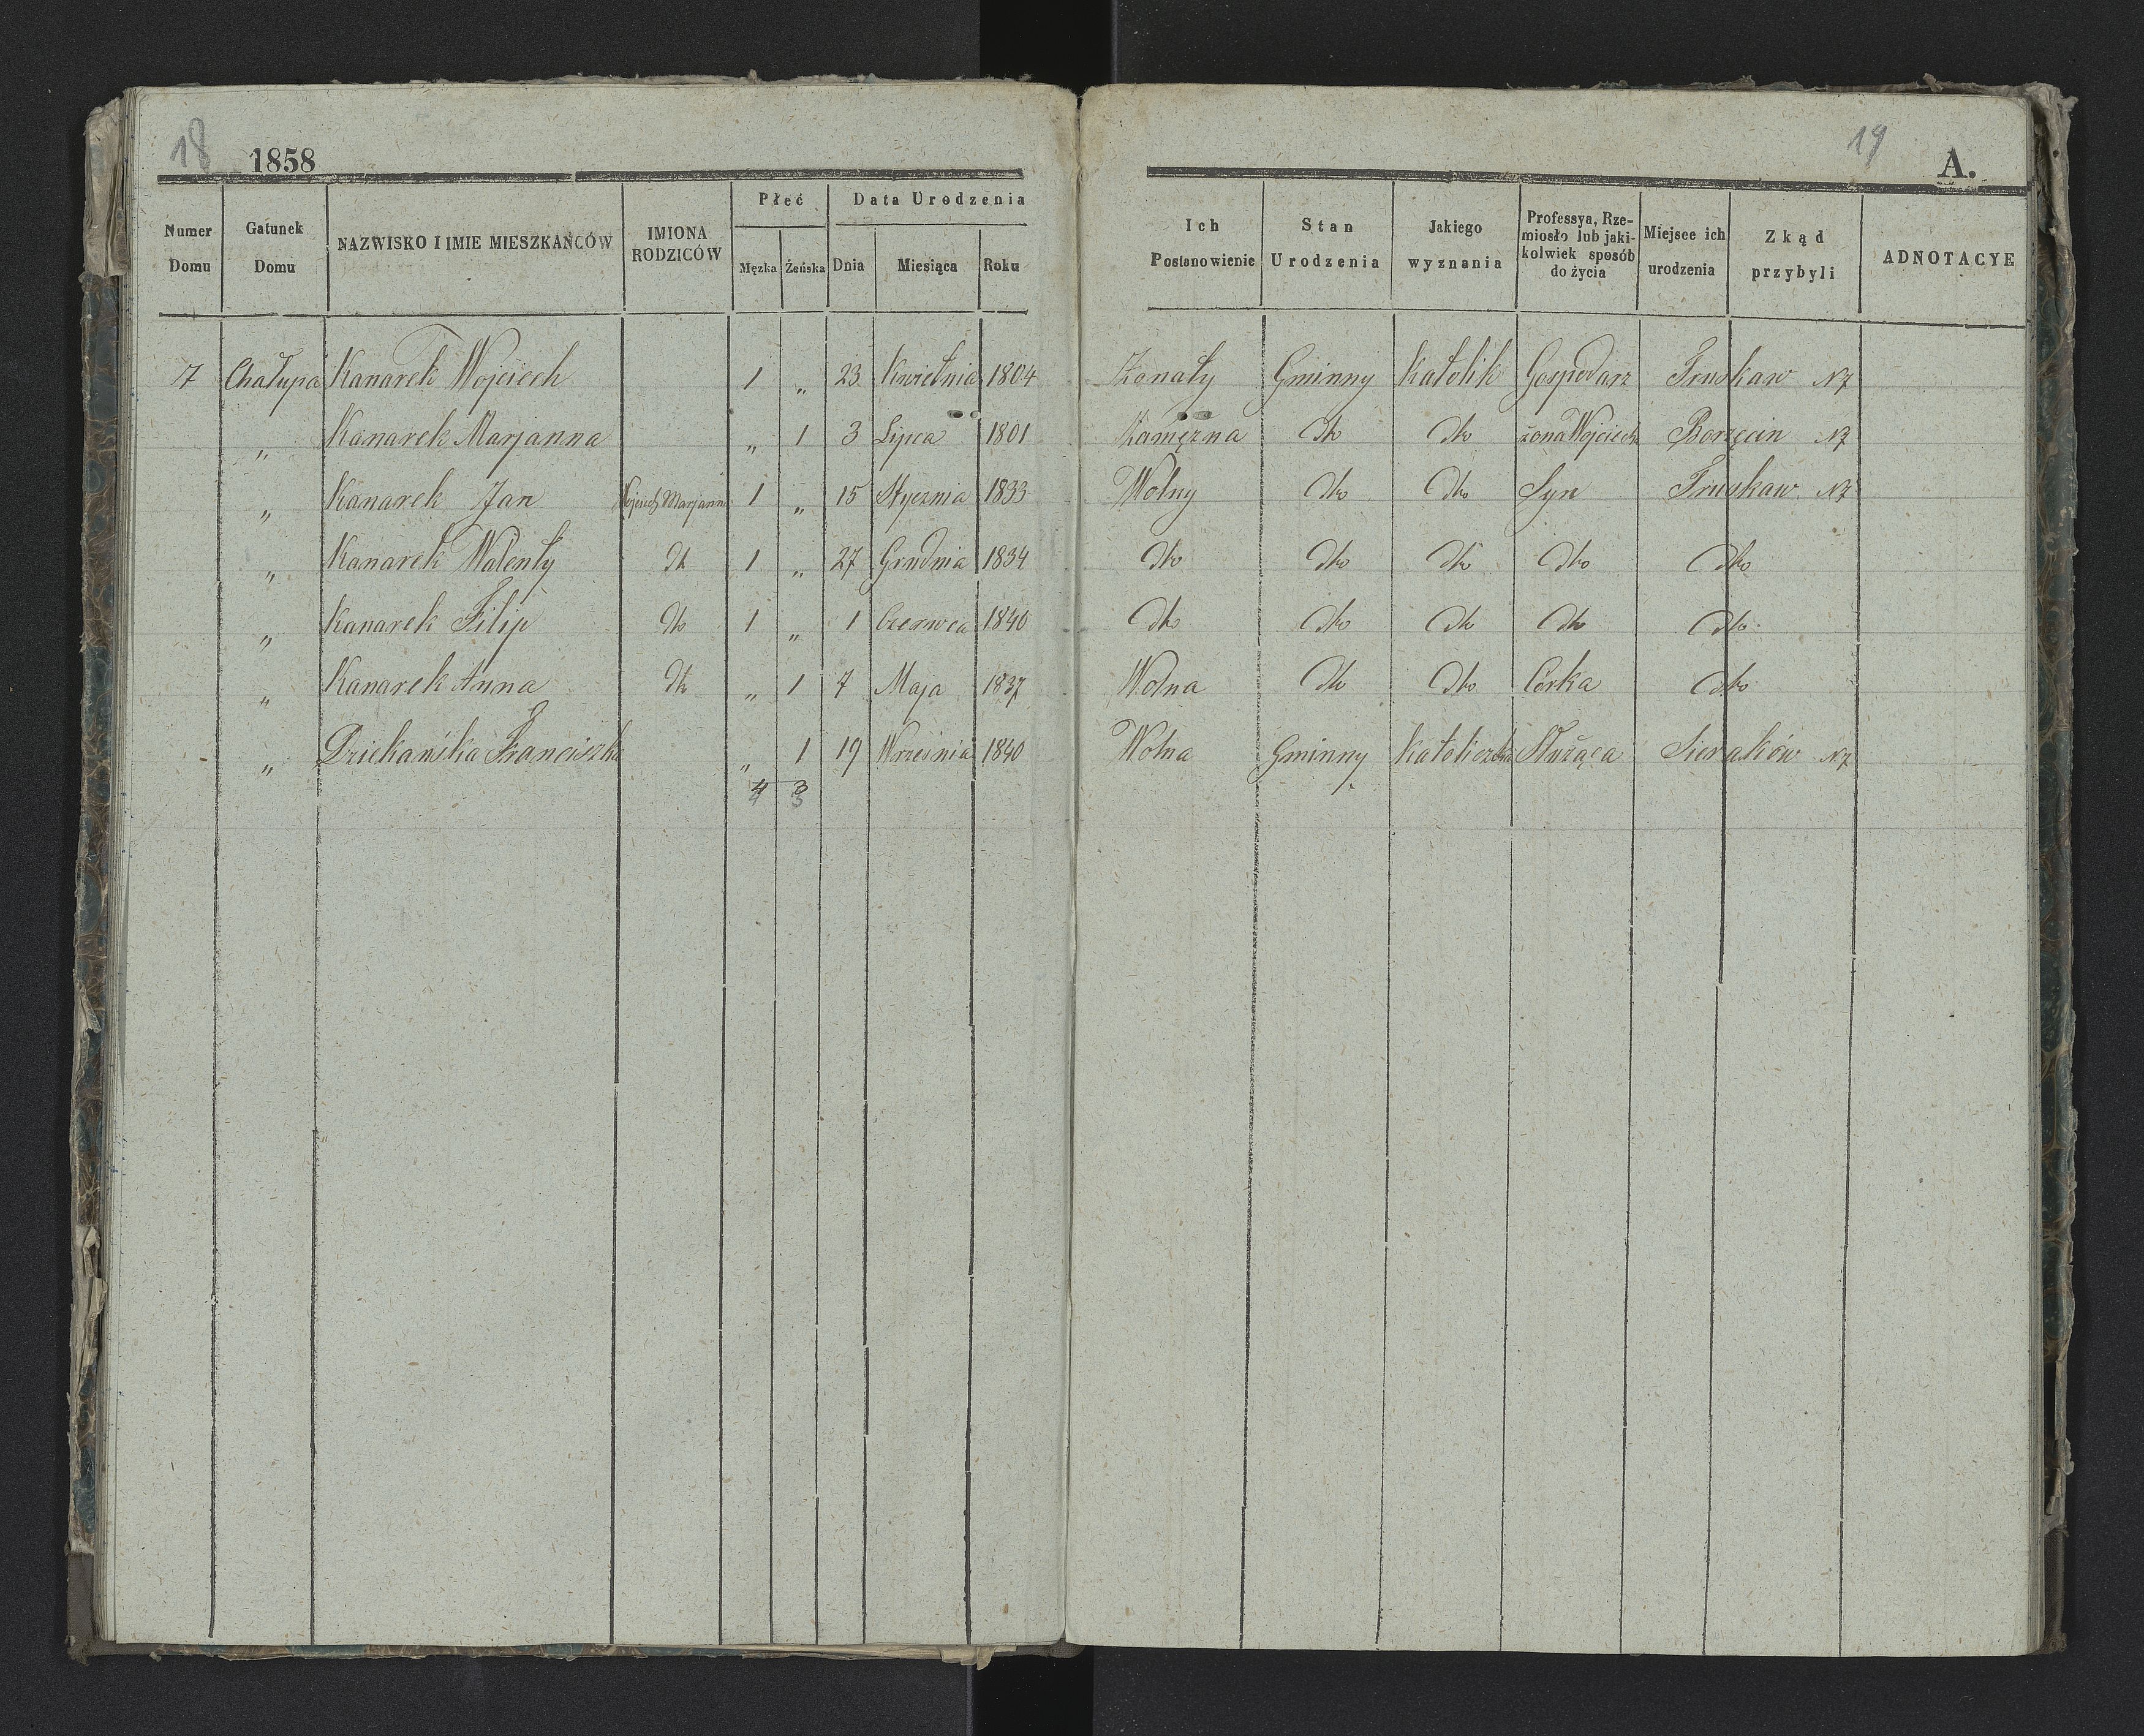 18 1858
Płeć Data Urodzenia
Numer Domu Gatunek Domu NAZWISKO I IMIE MIESZKAŃCÓW IMIONA RODZICÓW Męzka Żeńska Dnia Miesiąca Roku
7 Chałupa Kanarek Wojciech 1 „ 23 Kwietnia 1804
„ Kanarek Marjanna „ 1 3 Lipca 1801
„ Kanarek Jan Wojciech Marjanna 1 „ 15 Stycznia 1833
„ Kanarek Walenty dto 1 „ 27 Grudnia 1834
„ Kanarek Filip dto 1 „ 1 Czerwca 1840
„ Kanarek Anna dto „ 1 7 Maja 1837
„ Dziekańska Franciszka „ 1 19 Września 1840
4 3
4 3
19 A.
Ich Postanowienie Stan Urodzenia Jakiego wyznania Professya, Rzemiosło lub jakikolwiek sposób do życia Miejsce ich urodzenia Zkąd przybyli ADNOTACYE
Żonaty Gminny Katolik Gospodarz Truskaw N7
Zamężna dto dto żona Wojciecha Borzęcin N7
Wolny dto dto Syn Truskaw N7
dto dto dto dto dto
dto dto dto dto dto
Wolna dto dto Córka dto
Wolna Gminny Katoliczka Służąca Sieraków N7